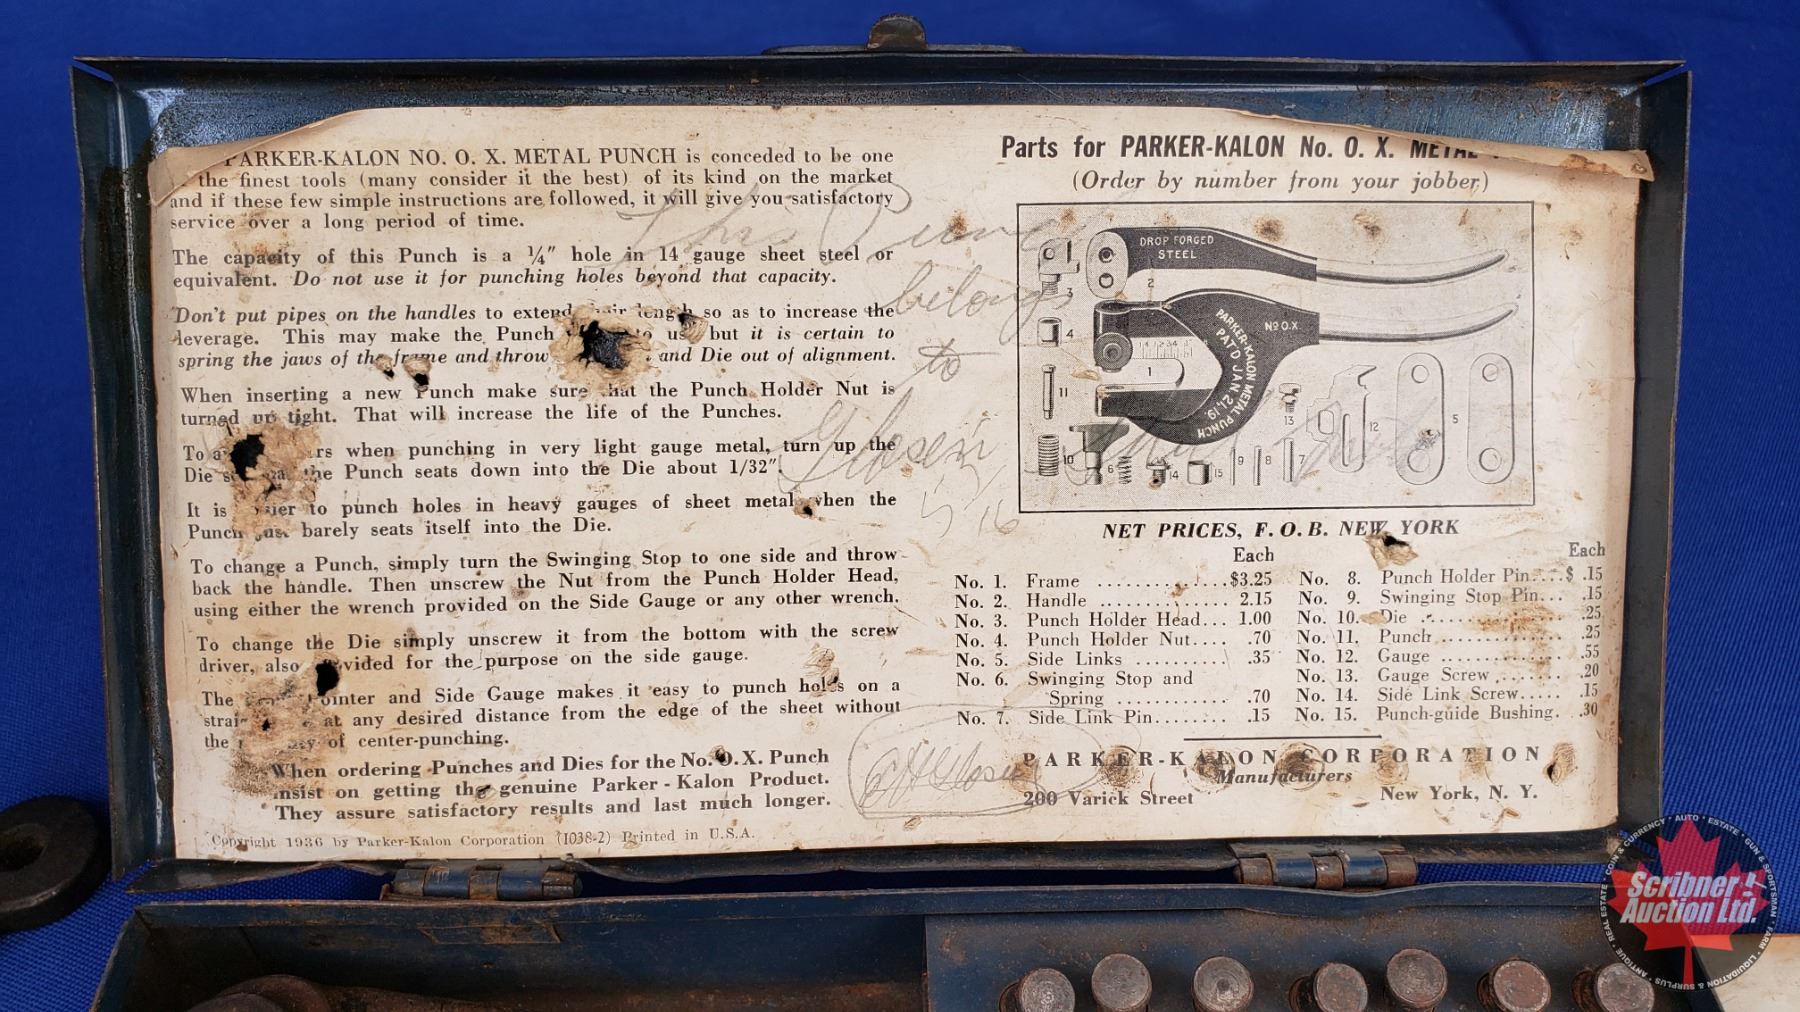 PARKER-KALON NO. O. X. METAL PUNCH is conceded to be one
the finest tools (many consider it the best) of its kind on the market
and if these few simple instructions are followed, it will give you satisfactory
service over a long period of time.
The capacity of this Punch is a ¼" hole in 14 gauge sheet steel or
equivalent. Do not use it for punching holes beyond that capacity.
Don't put pipes on the handles to extend their length so as to increase the
leverage. This may make the Punch to use but it is certain to
spring the jaws of the frame and throw and Die out of alignment.
When inserting a new Punch make sure that the Punch Holder Nut is
turned up tight. That will increase the life of the Punches.
To when punching in very light gauge metal, turn up the
Die the Punch seats down into the Die about 1/32".
It is to punch holes in heavy gauges of sheet metal when the
Punch just barely seats itself into the Die.
To change a Punch, simply turn the Swinging Stop to one side and throw
back the handle. Then unscrew the Nut from the Punch Holder Head,
using either the wrench provided on the Side Gauge or any other wrench.
To change the Die simply unscrew it from the bottom with the screw
driver, also provided for the purpose on the side gauge.
The Pointer and Side Gauge makes it easy to punch holes on a
at any desired distance from the edge of the sheet without
the of center-punching.
When ordering Punches and Dies for the No. O.X. Punch
insist on getting the genuine Parker-Kalon Product.
They assure satisfactory results and last much longer.
Copyright 1936 by Parker-Kalon Corporation (1038-2) Printed in U.S.A.
This Punch
belongs
to
Parts for PARKER-KALON No. O. X. METAL
(Order by number from your jobber)
DROP FORGED
STEEL
No O.X.
PARKER-KALON METAL PUNCH
PAT'D JAN 21, '19.
1
2
3
4
5
6
7
8
9
10
11
12
13
14
15
NET PRICES, F. O. B. NEW YORK
Each
No. 1. Frame $3.25
No. 2. Handle 2.15
No. 3. Punch Holder Head... 1.00
No. 4. Punch Holder Nut.... .70
No. 5. Side Links .35
No. 6. Swinging Stop and
Spring .70
No. 7. Side Link Pin .15
Each
No. 8. Punch Holder Pin....$ .15
No. 9. Swinging Stop Pin... .15
No. 10. Die .25
No. 11. Punch .25
No. 12. Gauge .55
No. 13. Gauge Screw .20
No. 14. Side Link Screw..... .15
No. 15. Punch-guide Bushing. .30
PARKER-KALON CORPORATION
Manufacturers
200 Varick Street New York, N. Y.
Scribner
Auction Ltd.
REAL ESTATE • COIN & CURRENCY • AUTO • ESTATE • GUN & SPORTSMAN • FARM • LIQUIDATION & SURPLUS • ANTIQUE